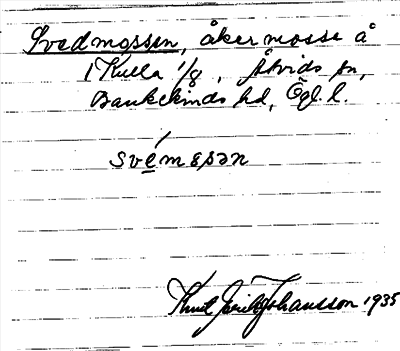 Svedmossen, åkermosse å
1 Kulla 1/8, Åtvids sn,
Bankekinds hd, Ögl. l.
svémɛsən
Knut Erik Johansson 1935